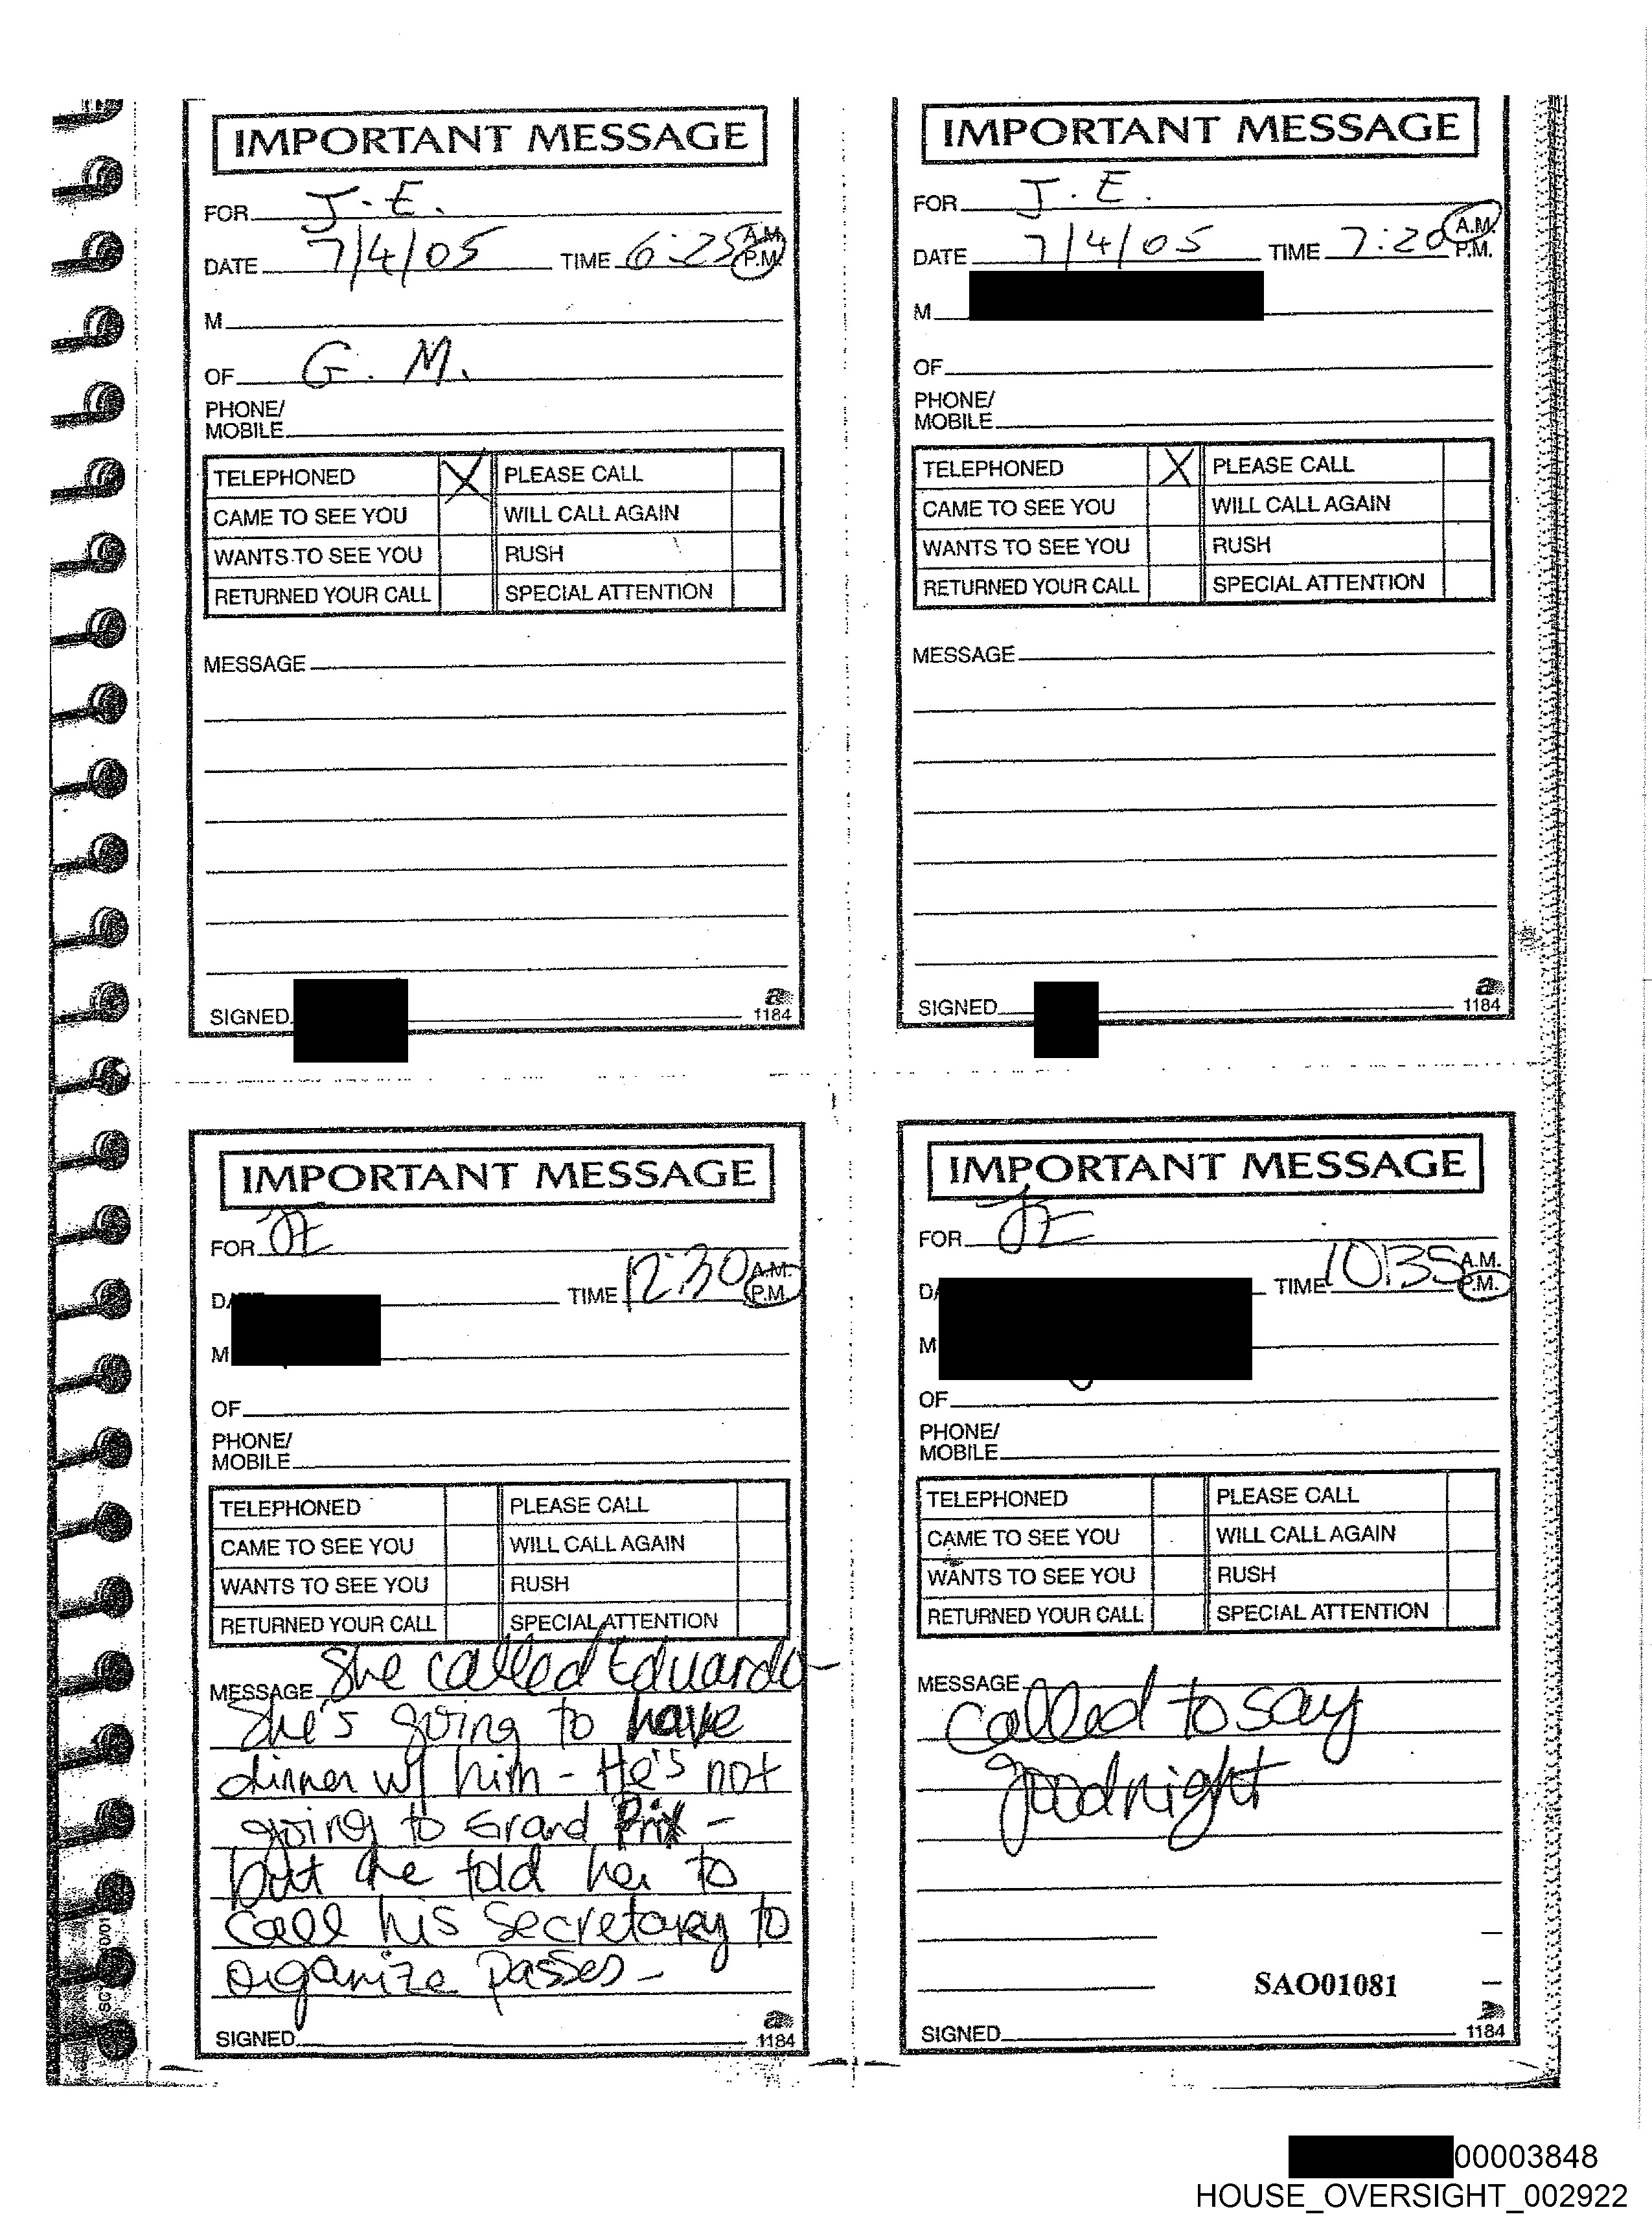 IMPORTANT MESSAGE
FOR J.E.
DATE 7/4/05 TIME 6:25 A.M. P.M.
M
OF G. M.
PHONE/
MOBILE
TELEPHONED X PLEASE CALL
CAME TO SEE YOU WILL CALL AGAIN
WANTS TO SEE YOU RUSH
RETURNED YOUR CALL SPECIAL ATTENTION
MESSAGE
SIGNED
1184
IMPORTANT MESSAGE
FOR J.E.
DATE 7/4/05 TIME 7:20 A.M. P.M.
M
OF
PHONE/
MOBILE
TELEPHONED X PLEASE CALL
CAME TO SEE YOU WILL CALL AGAIN
WANTS TO SEE YOU RUSH
RETURNED YOUR CALL SPECIAL ATTENTION
MESSAGE
SIGNED
1184
IMPORTANT MESSAGE
FOR JE
TIME 12:30 A.M. P.M.
M
OF
PHONE/
MOBILE
TELEPHONED PLEASE CALL
CAME TO SEE YOU WILL CALL AGAIN
WANTS TO SEE YOU RUSH
RETURNED YOUR CALL SPECIAL ATTENTION
MESSAGE She called Eduardo-
She's going to have
dinner w/ him - He's not
going to Grand Prix -
but he told her to
call his secretary to
organize passes -
SIGNED
1184
IMPORTANT MESSAGE
FOR JE
TIME 10:35 A.M. P.M.
M
OF
PHONE/
MOBILE
TELEPHONED PLEASE CALL
CAME TO SEE YOU WILL CALL AGAIN
WANTS TO SEE YOU RUSH
RETURNED YOUR CALL SPECIAL ATTENTION
MESSAGE
called to say
goodnight
SAO01081
SIGNED
1184
00003848
HOUSE_OVERSIGHT_002922